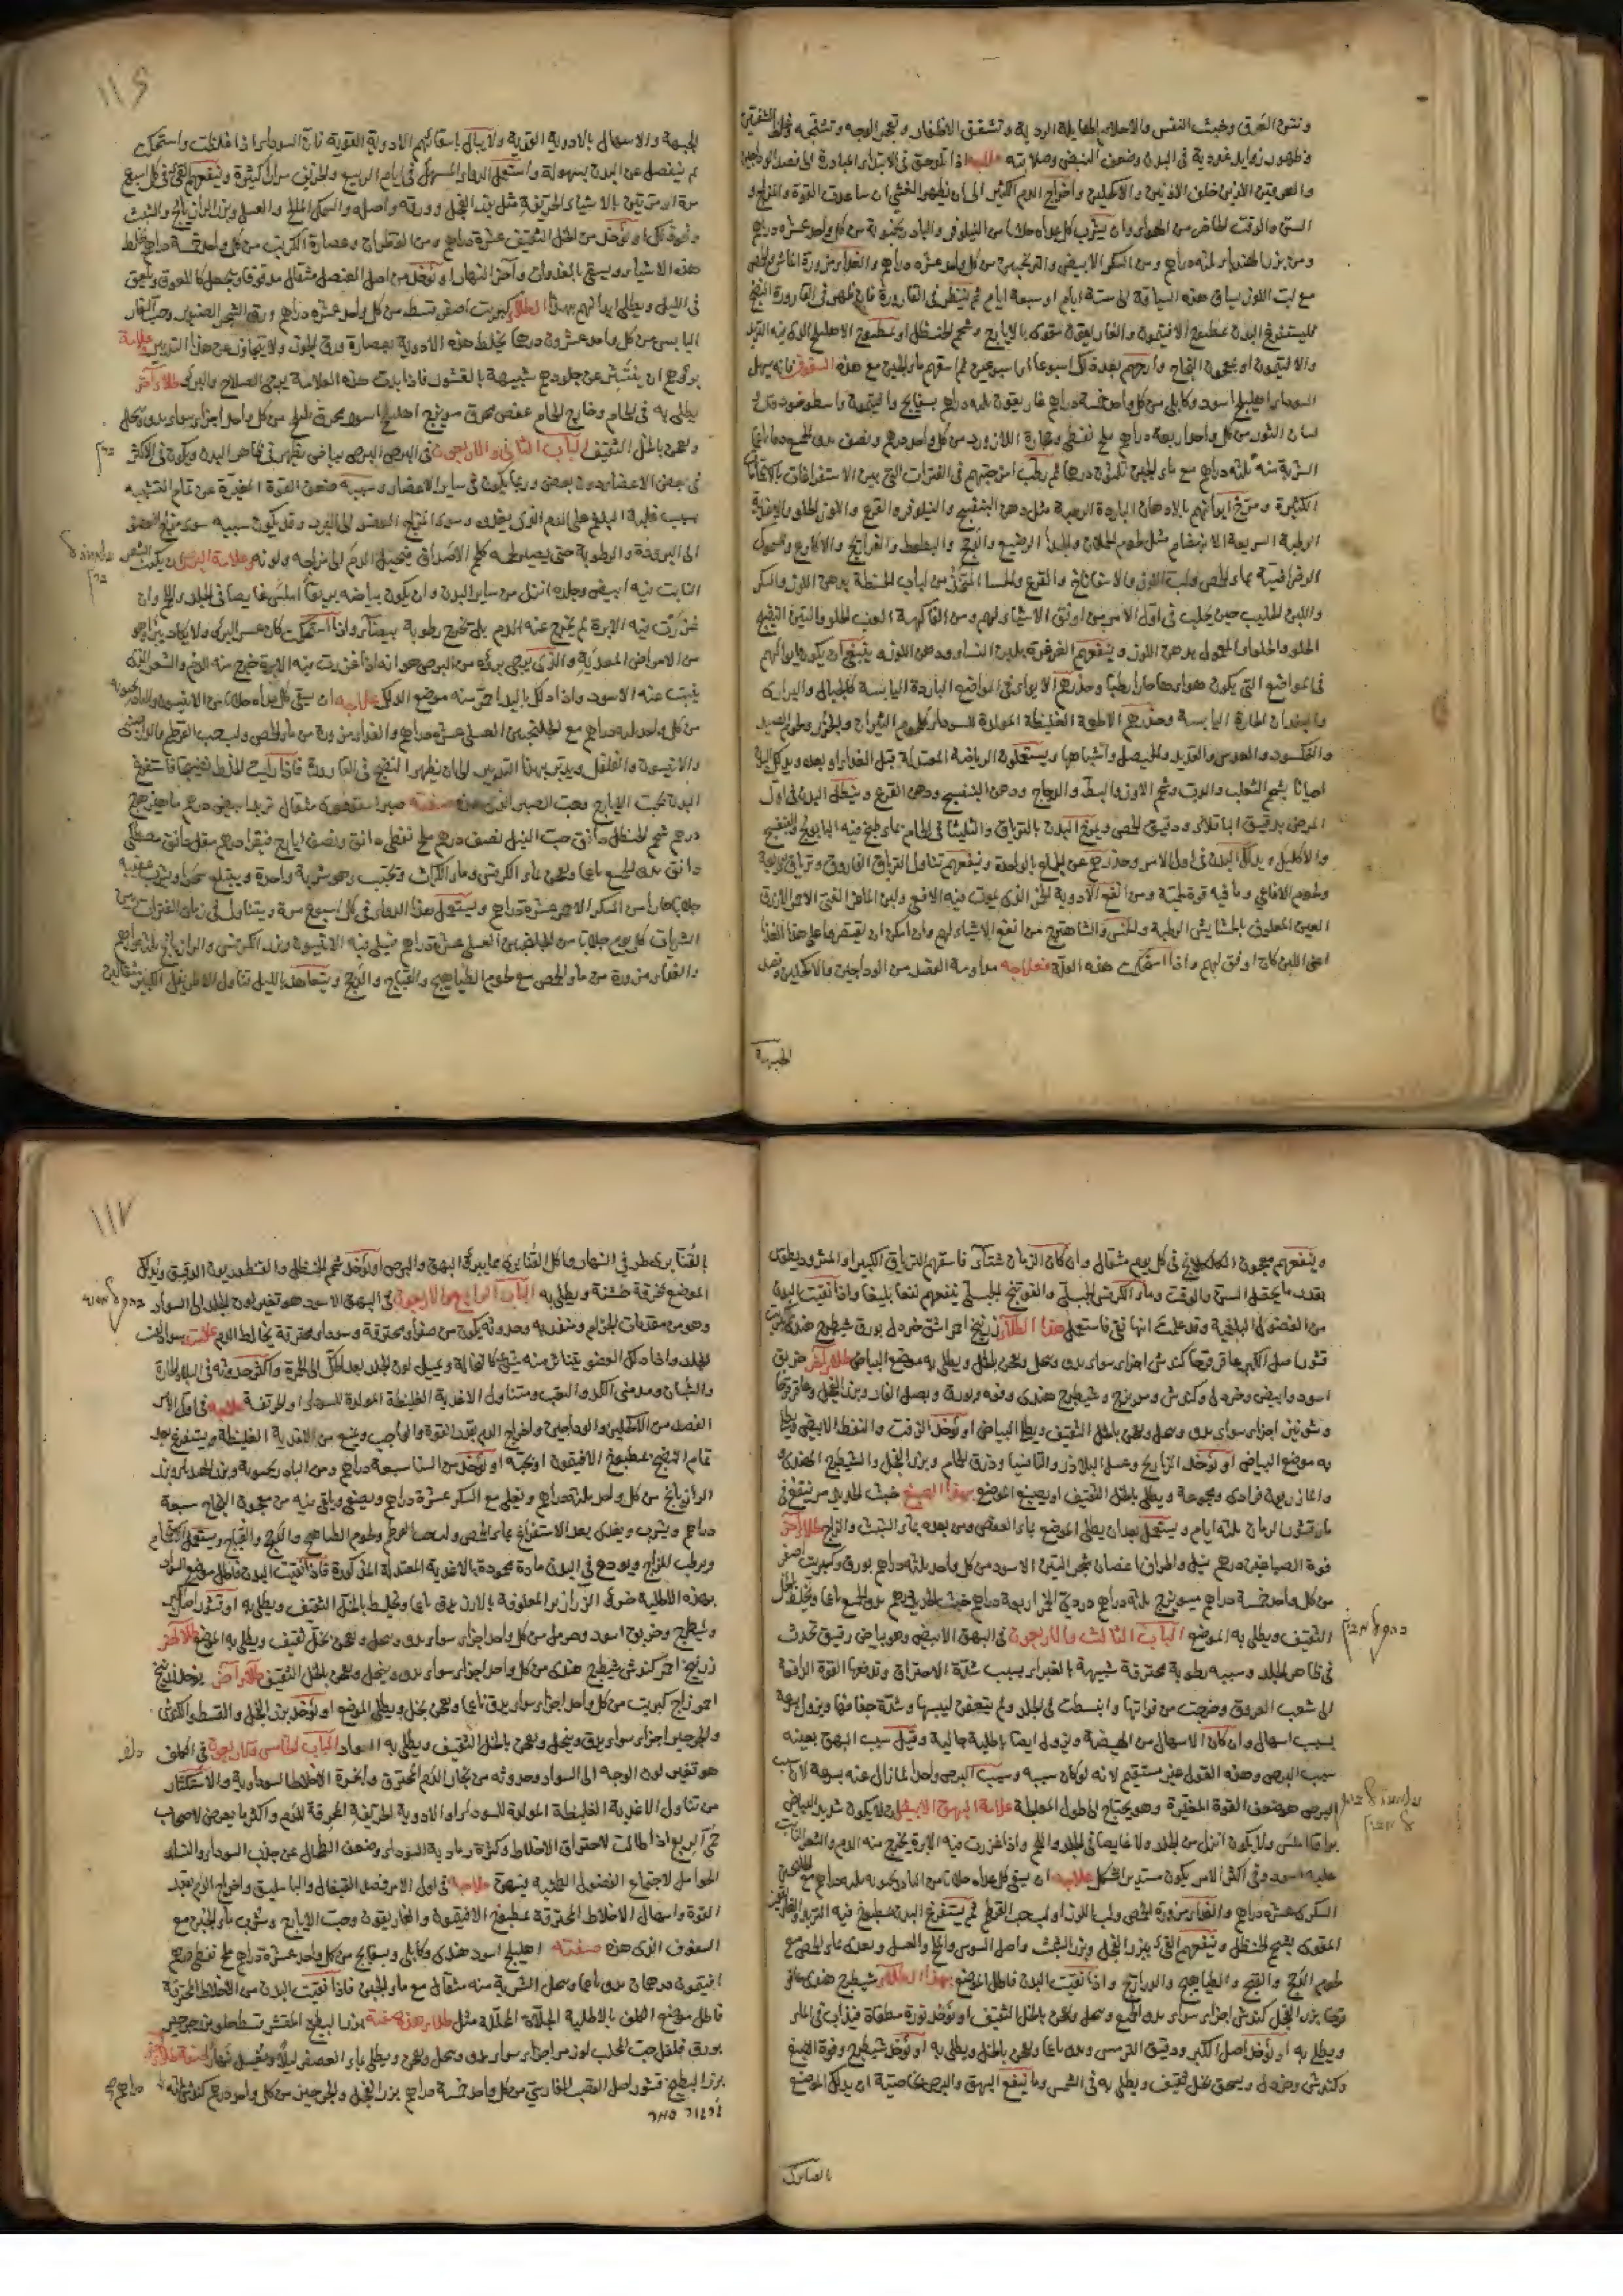 ونتن العرق وخبث النفس والاحلام الهايلة الردية وتشقق الاظفار وتجر الوجه وتشنجه وغلظ الشفتين
وظهور زوايد غددية فى البدن وضعف النبض وصلابته علاجه اذا لوحق فى الابتداء المبادرة الى فصد الوداجين
والعرقين الذين خلف الاذنين والاكحلين واخراج الدم الكثير الى ان يظهر الغشى ان ساعدت القوة والمزاج و
السن والوقت الحاضر من الهواء وان يشرب كل غداة جلابا من النيلوفر والباد رنجبوية من كل واحد عشرة دراهم
ومن بزر الهندباء ثلثة دراهم ومن السكر الابيض والترنجبين من كل واحد عشرة دراهم والغذاء مزورة الماش والحمص
مع لب اللوز يساق هذه السياقة الى ستة ايام او سبعة ايام ثم ينظر فى القارورة فان ظهر فى القارورة النضج
فليستفرغ البدن بمطبوخ الافتيمون والغاريقون مقوى بالايارج وشحم الحنظل او بمطبوخ الاهليلج الذى فيه التربد
والافتيمون او بمعجون النجاح وارحهم بعد ذلك اسبوعا او اسبوعين ثم اسقهم ماء الجبن مع هذه السفوف فانه يسهل
السوداء اهليلج اسود وكابلى من كل واحد خمسة دراهم غاريقون ثلثة دراهم بسفايج وافتيمون واسطوخودوس
لسان الثور من كل واحد اربعة دراهم ملح نفطى وحجارة اللازورد من كل واحد درهم ونصف يدق الجميع دقا ناعما
الشربة منه ثلثة دراهم مع ماء الجبن ثلثون درهما ثم رطب امزجتهم فى الفترات التى بين الاستفراغات
الكثيرة ومرخ ابدانهم بالادهان الباردة الرطبة مثل دهن البنفسج والنيلوفر والقرع واللوز الحلو والاغذية
الرطبة السريعة الانهضام مثل لحوم الحملان والجدا الرضيع والدجج والبطط والفراريج والاكارع والسموك
الرضراضية بماء الحمص ولب اللوز والاسفاناخ والقرع والحسا المتخذ من لباب الحنطة بدهن اللوز والسكر
واللبن الحليب حين يحلب فى اول الامر من اوفق الاشياء لهم ومن الفاكهة العنب الحلو والتين النضيج
الحلو والحلواء المعمول بدهن اللوز وينفعهم الغرغرة بلبن النساء ودهن اللوز وينبغى ان يكون ايواهم
فى المواضع التى يكون هواءها حارا رطبا وحذرهم الايواء فى المواضع الباردة اليابسة كالجبال والبرارى
والبلدان الحارة اليابسة وحذرهم الاطعمة الغليظة المولدة للسوداء كلحوم الثيران والجزر ولحوم الصيد
والنمكسود والعدس والقديد والمصل واشباهها ويستعملون الرياضة المعتدلة قبل الغذاء
احيانا بشحم الثعلب والدب وشحم الاوز والبط والدجاج ودهن البنفسج ودهن القرع وينطل البدن فى اول
المرض بدقيق الباقلاء ودقيق الحمص ويمرخ البدن بالترياق
والاكليل ويدلك البدن فى اول الامر وحذرهم عن الجماع بالواحدة وينفعهم تناول الترياق الفاروق وترياق الاربعة
ولحوم الافاعى وما فيه قوة لحمية ومن انفع الادوية الخمر الذى يموت فيه الافعى ولبن الماعز الفتى الاحمر الازرق
العين المعلوف بالحشايش الرطبة والخس والشاهترج من انفع الاشياء لهم وان امكن ان يقتصر على هذا الغذاء
اعنى اللبن كان اوفق لهم واذا استحكمت هذه العلة فعلاجه مداومة الفصد من الوداجين والاكحلين وفصد
الجبهة
١١٦
الجبهة والاسهال بالادوية القوية ولا يبال باسقائهم الادوية القوية فان السوداء اذا غلظت واستحكمت
لم ينفصل عن البدن بسهولة واستعمل الدواء المسهل فى ايام الربيع والخريف مرارا كثيرة وينفعهم القئ فى كل اسبوع
مرة او مرتين بالاشياء الحريفة مثل بزر الفجل وورقه واصله والسمك المالح والعسل وبزر الرازيانج والشبث
هذه الاشياء ويسقى بالغدوات وآخر النهار او يؤخذ من اصل العنصل مثقال مدقوقا ويجعل كاللعوق ويلعق
فى الليل ويطلى ابدانهم بهذا الطلاء كبريت اصفر قسط من كل واحد عشرة دراهم ورق الشجر الصنوبر وحب الغار
اليابس من كل واحد عشرون درهما يخلط هذه الادوية بعصارة ورق الجوز ولا يتجاوز عن هذا التدبير وعلامة
برؤهم ان يقشر عن جلودهم شبيهة بالقشور فاذا بدت هذه العلامة يرجى الصلاح والبرء طلاء آخر
يطلى به فى الحمام وخارج الحمام عفص محرق مويزج اهليلج اسود محرق بليلج من كل واحد اجزاء سواء يدق وينخل
ويعجن بالخل الثقيف الباب الثانى والاربعون فى البرص البرص بياض يظهر فى ظاهر البدن ويكون فى الاكثر
فى بعض الاعضاء دون بعض وربما يكون فى ساير الاعضاء وسببه ضعف القوة المغيرة عن تمام التشبيه
بسبب غلبة البلغم على الدم الذى يغذوه وسوء المزاج العضو الى البرد وقد يكون سببه سوء مزاج العضو
الى البرودة والرطوبة حتى يصير لحمه كلحم الاصداف فيحيل الدم الى مزاجه ولونه وعلامة البرص ان يكون الشعر
النابت فيه ابيض وجلده انزل من ساير البدن وان يكون بياضه براقا املس غايصا فى الجلد واللحم وان
غرزت فيه الابرة لم يخرج عنه الدم بل تخرج رطوبة بيضاء واذا استحكمت كان عسر البرء ولا يكاد يبرأ وهو
من الامراض المعدية والذى يرجى برؤه من البرص هو انه اذا غرزت فيه الابرة خرج منه الدم والشعر الذى
ينبت عنه الاسود واذا دلك باليد احمر منه موضع الدلك علاجه ان يسقى كل غداة جلابا من الانيسون
من كل واحد ثلثة دراهم مع الجلنجبين العسلى عشرة دراهم والغذاء مزورة من ماء الحمص ولب حب القرطم بالدارصينى
والانيسون والفلفل ويدبر بهذا التدبير الى ان يظهر النضج فى القارورة فاذا رايت الخلط نضيجا فاستفرغ
البدن بحب الايارج وبحب الصبر الذى هذه صفته صبر اسقوطرى مثقال تربد ابيض درهم ماهيزهرج
درهم شحم الحنظل دانق حب النيل نصف درهم ملح نفطى دانق ونصف ايارج فيقرا درهم مقل دانق مصطكى
دانق يدق الجميع ناعما ويعجن بماء الكرفس وماء الكراث ويحبب وهو شربة واحدة ويبتلع سحرا ويشرب عقيبه
جلابا حارا من السكر الاحمر عشرة دراهم ويستعمل هذا الدواء فى كل اسبوع مرة ويتناول فى زمان الفترات بين
الشربات كل يوم جلابا من الجلنجبين العسلى عشرة دراهم مغلى فيه الانيسون وبزر الكرفس والرازيانج ثلثة دراهم
والغذاء مزورة من ماء الحمص مع لحوم الطياهيج والقبج والدجج ويتعاهد بالليل تناول الاطريفل الكبير مثقالين
وينفعهم معجون الكلكلانج فى كل يوم مثقال وان كان الزمان شتاء فاسقهم الترياق الكبير او المثروديطوس
بقدر ما يحتمل السن والوقت وماء الكرفس الجبلى والفوتنج الجبلى ينفعهم نفعا بليغا واذا نقيت البدن
من الفضول البلغمية وقد علمت انها نقى فاستعمل هذا الطلاء زرنيخ احمر اشق خردل بورق شيطرج هندى كبريت
قشور اصل الكبر عاقرقرحا كندش اجزاء سواء يدق وينخل ويعجن بالخل ويطلى به موضع البياض طلاء آخر خربق
اسود وابيض وخردل وكندش ومويزج وشيطرج هندى وفوه ونورة وبصل الفار وبزر الفجل وعاقرقرحا
وشونيز اجزاء سواء يدق وينخل ويعجن بالخل الثقيف ويطلى البياض او يؤخذ الزفت والنفط الابيض ويطلى
به موضع البياض او يؤخذ الذراريح وعسل البلاذر والثافسيا وذرق الحمام وبزر الفجل والشيطرج الهندى
والمازريون فرادى ومجموعة ويطلى بالخل الثقيف او يصبغ الموضع بهذا الصبغ خبث الحديد ينقع فى
ماء قشور الرمان ثلثة ايام ويستعمل بعد ان يطلى الموضع بماء العفص ومن بعده بماء الشبث والزاج طلاء آخر
فوة الصباغين درهم نيل واطراف اغصان شجر التين الاسود من كل واحد ثلثة دراهم بورق وكبريت اصفر
من كل واحد خمسة دراهم ميويزج ثلثة دراهم دردى الخمر اربعة دراهم خبث الحديد درهم يدق الجميع ناعما ويخلط بالخل
الثقيف ويطلى به الموضع الباب الثالث والاربعون فى البهق الابيض وهو بياض رقيق تحدث
فى ظاهر الجلد وسببه رطوبة محترقة شبيهة بالغبراء بسبب شدة الاحتراق وتدفعها القوة الدافعة
الى شعوب العروق وخرجت من فواتها وانبسطت فى الجلد ولم يتعفن ليبسها وشدة جفافها ويزول بسرعة
بسبب اسهال وان كان الاسهال من الهيضة ويزول ايضا باطلية جالية وقيل سبب البهق بعينه
سبب البرص وهذه القول غير مستقيم لانه لو كان سببه وسبب البرص واحدا لما زال عنه بسرعة لان سبب
البرص هو ضعف القوة المغيرة وهو يحتاج الى طول المعالجة علامة البهق الابيض ان لا يكون شديد البياض
براقا املس ولا يكون انزل من الجلد ولا غايصا فى الجلد واللحم واذا غرزت فيه الابرة يخرج منه الدم والشعر النابت
عليه اسود وفى اكثر الامر يكون مستدير الشكل علاجه ان يسقى كل غداة جلابا من البادرنجبويه ثلثة دراهم مع الجلنجبين
السكرى عشرة دراهم والغذاء مزورة الحمص ولب اللوز او لب حب القرطم ثم يستفرغ البدن بمطبوخ فيه التربد والغاريقون
المقوى بشحم الحنظل وينفعهم القئ ببزر الفجل وبزر الشبث واصل السوس والملح والعسل ويغذى بماء الحمص مع
لحوم الدجج والقبج والطياهيج والدراريج واذا نقيت البدن فاطل الموضع بهذا الطلاء شيطرج هندى عاقر
قرحا بزر الفجل كندش اجزاء سواء يدق الجميع وينخل ويعجن بالخل الثقيف او يؤخذ نورة مطفاة فيذاب فى الماء
ويطلى به او يؤخذ اصل الكبر ودقيق الترمس ويدق ناعما ويعجن بالخل ويطلى به او يؤخذ شيطرج وفوة الصبغ
وكندش وخردل ويسحق بخل ثقيف ويطلى به فى الشمس وما ينفع البهق والبرص بخاصية ان يدلك الموضع
١١٧
الموضع بخرقة خشنة ويطلى به الباب الرابع والاربعون فى البهق الاسود هو تغير لون الجلد الى السواد
وهو من مقدمات الجذام ومنذر به وحدوثه يكون من صفراء محترقة وسوداء محترقة يخالط الدم علامته سواد لون
الجلد واذا دلك العضو يتناثر منه شئ كالنخالة ويميل لون الجلد بعد الدلك الى الحمرة واكثر حدوثه فى البلاد الحارة
والشبان ومدمنى الكد والتعب ومتناول الاغذية الغليظة المولدة للسوداء او الحريفة علاجه فى اول الامر
الفصد من الاكحلين والوداجين واخراج الدم بقدر القوة والواجب ويمنع من الاغذية الغليظة ويستفرغ بعد
تمام النضج بمطبوخ الافتيمون او بحبه او يؤخذ من السنا سبعة دراهم ومن البادرنجبويه وبزر الهندباء وبزر
الرازيانج من كل واحد ثلثة دراهم ويغلى مع السكر عشرة دراهم ويصفى ويلقى فيه من معجون النجاح سبعة
دراهم ويشرب ويغذى بعد الاستفراغ بماء الحمص ولب حب القرطم ولحوم الطياهيج والدجج والقباج ويستعمل الاستحمام
ويرطب المزاج ويودع فى البدن مادة محمودة بالاغذية المعتدلة المذكورة فاذا نقيت البدن فاطل موضع السواد
بهذه الاطلية ضرق الزرازير المعلوفة بالارز يدق ناعما ويخلط بالخل الثقيف ويطلى به او قشور اصل الكبر
وشيطرج وخربق اسود وحرمل من كل واحد اجزاء سواء يدق وينخل ويعجن بخل ثقيف ويطلى به الموضع طلاء آخر
زرنيخ احمر كندش شيطرج هندى من كل واحد اجزاء سواء يدق وينخل ويعجن بالخل الثقيف طلاء آخر يؤخذ زرنيخ
احمر زاج كبريت من كل واحد اجزاء سواء يدق ناعما ويعجن بخل ويطلى الموضع او يؤخذ بزر الفجل والقسط والكندش
والجرجير اجزاء سواء يدق وينخل ويعجن بالخل الثقيف ويطلى به السواد الباب الخامس والاربعون فى الكلف
هو تغير لون الوجه الى السواد وحدوثه من بخار الدم المحترق وابخرة الاخلاط السوداوية والاستكثار
من تناول الاغذية الغليظة المولدة للسوداء او الادوية الحريفة المحرقة للدم واكثر ما يعرض لاصحاب
حمى الربع اذا طالت لاحتراق الاخلاط وكثرة رمادية السوداء وضعف الطحال عن جذب السوداء والنساء
الحوامل لاجتماع الفضول الطمثية فيهن علاجه فى اول الامر فصد القيفال والباسليق واخراج الدم بقدر
القوة واسهال الاخلاط المحترقة بمطبوخ الافتيمون والغاريقون وحب الايارج وشرب ماء الجبن مع
السفوف الذى هذه صفته اهليلج اسود هندى وكابلى وبسفايج من كل واحد عشرة دراهم ملح نفطى درهم
افتيمون درهمان يدق ناعما وينخل الشربة منه مثقال مع ماء الجبن فاذا نقيت البدن من الاخلاط المحترقة
فاطل موضع الكلف بالاطلية الجلاءة المحللة مثل طلاء هذه صفته بزر البطيخ المقشر قسط حلو بزر جرجير
بورق فلفل حب المحلب لوز مر اجزاء سواء يدق وينخل ويعجن ويطلى بماء العصفر ليلا ويغسل نهارا
بزر البطيخ قشور اصل القصب الفارسى من كل واحد خمسة دراهم بزر الفجل والجرجير من كل واحد درهم